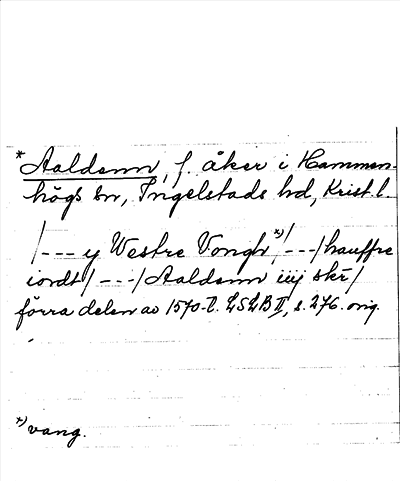 * Aaldenn, f. åker i Hammen-
högs sn, Ingelstads hd, Krist. l.
/--- y Westre Vongh *)/---/ hauffre
iordt/ ---/ Aaldenn iiij skr/
förra delen av 1570-t. LSLB II, s. 276. orig.
*) vang.